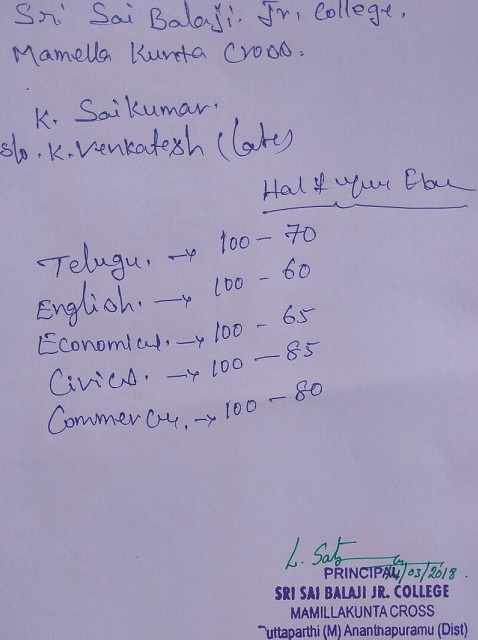 Sri Sai Balaji. Jr. College.
Mamella Kunta Cross.
K. Saikumar.
s/o. K. Venkatesh (late)
Half
Telugu. → 100 - 70
English. → 100 - 60
Economics. → 100 - 65
Civics. → 100 - 85
Commerce. → 100 - 80
L.
PRINCIPAL /03/2018
SRI SAI BALAJI JR. COLLEGE
MAMILLAKUNTA CROSS
uttaparthi (M) Ananthapuramu (Dist)